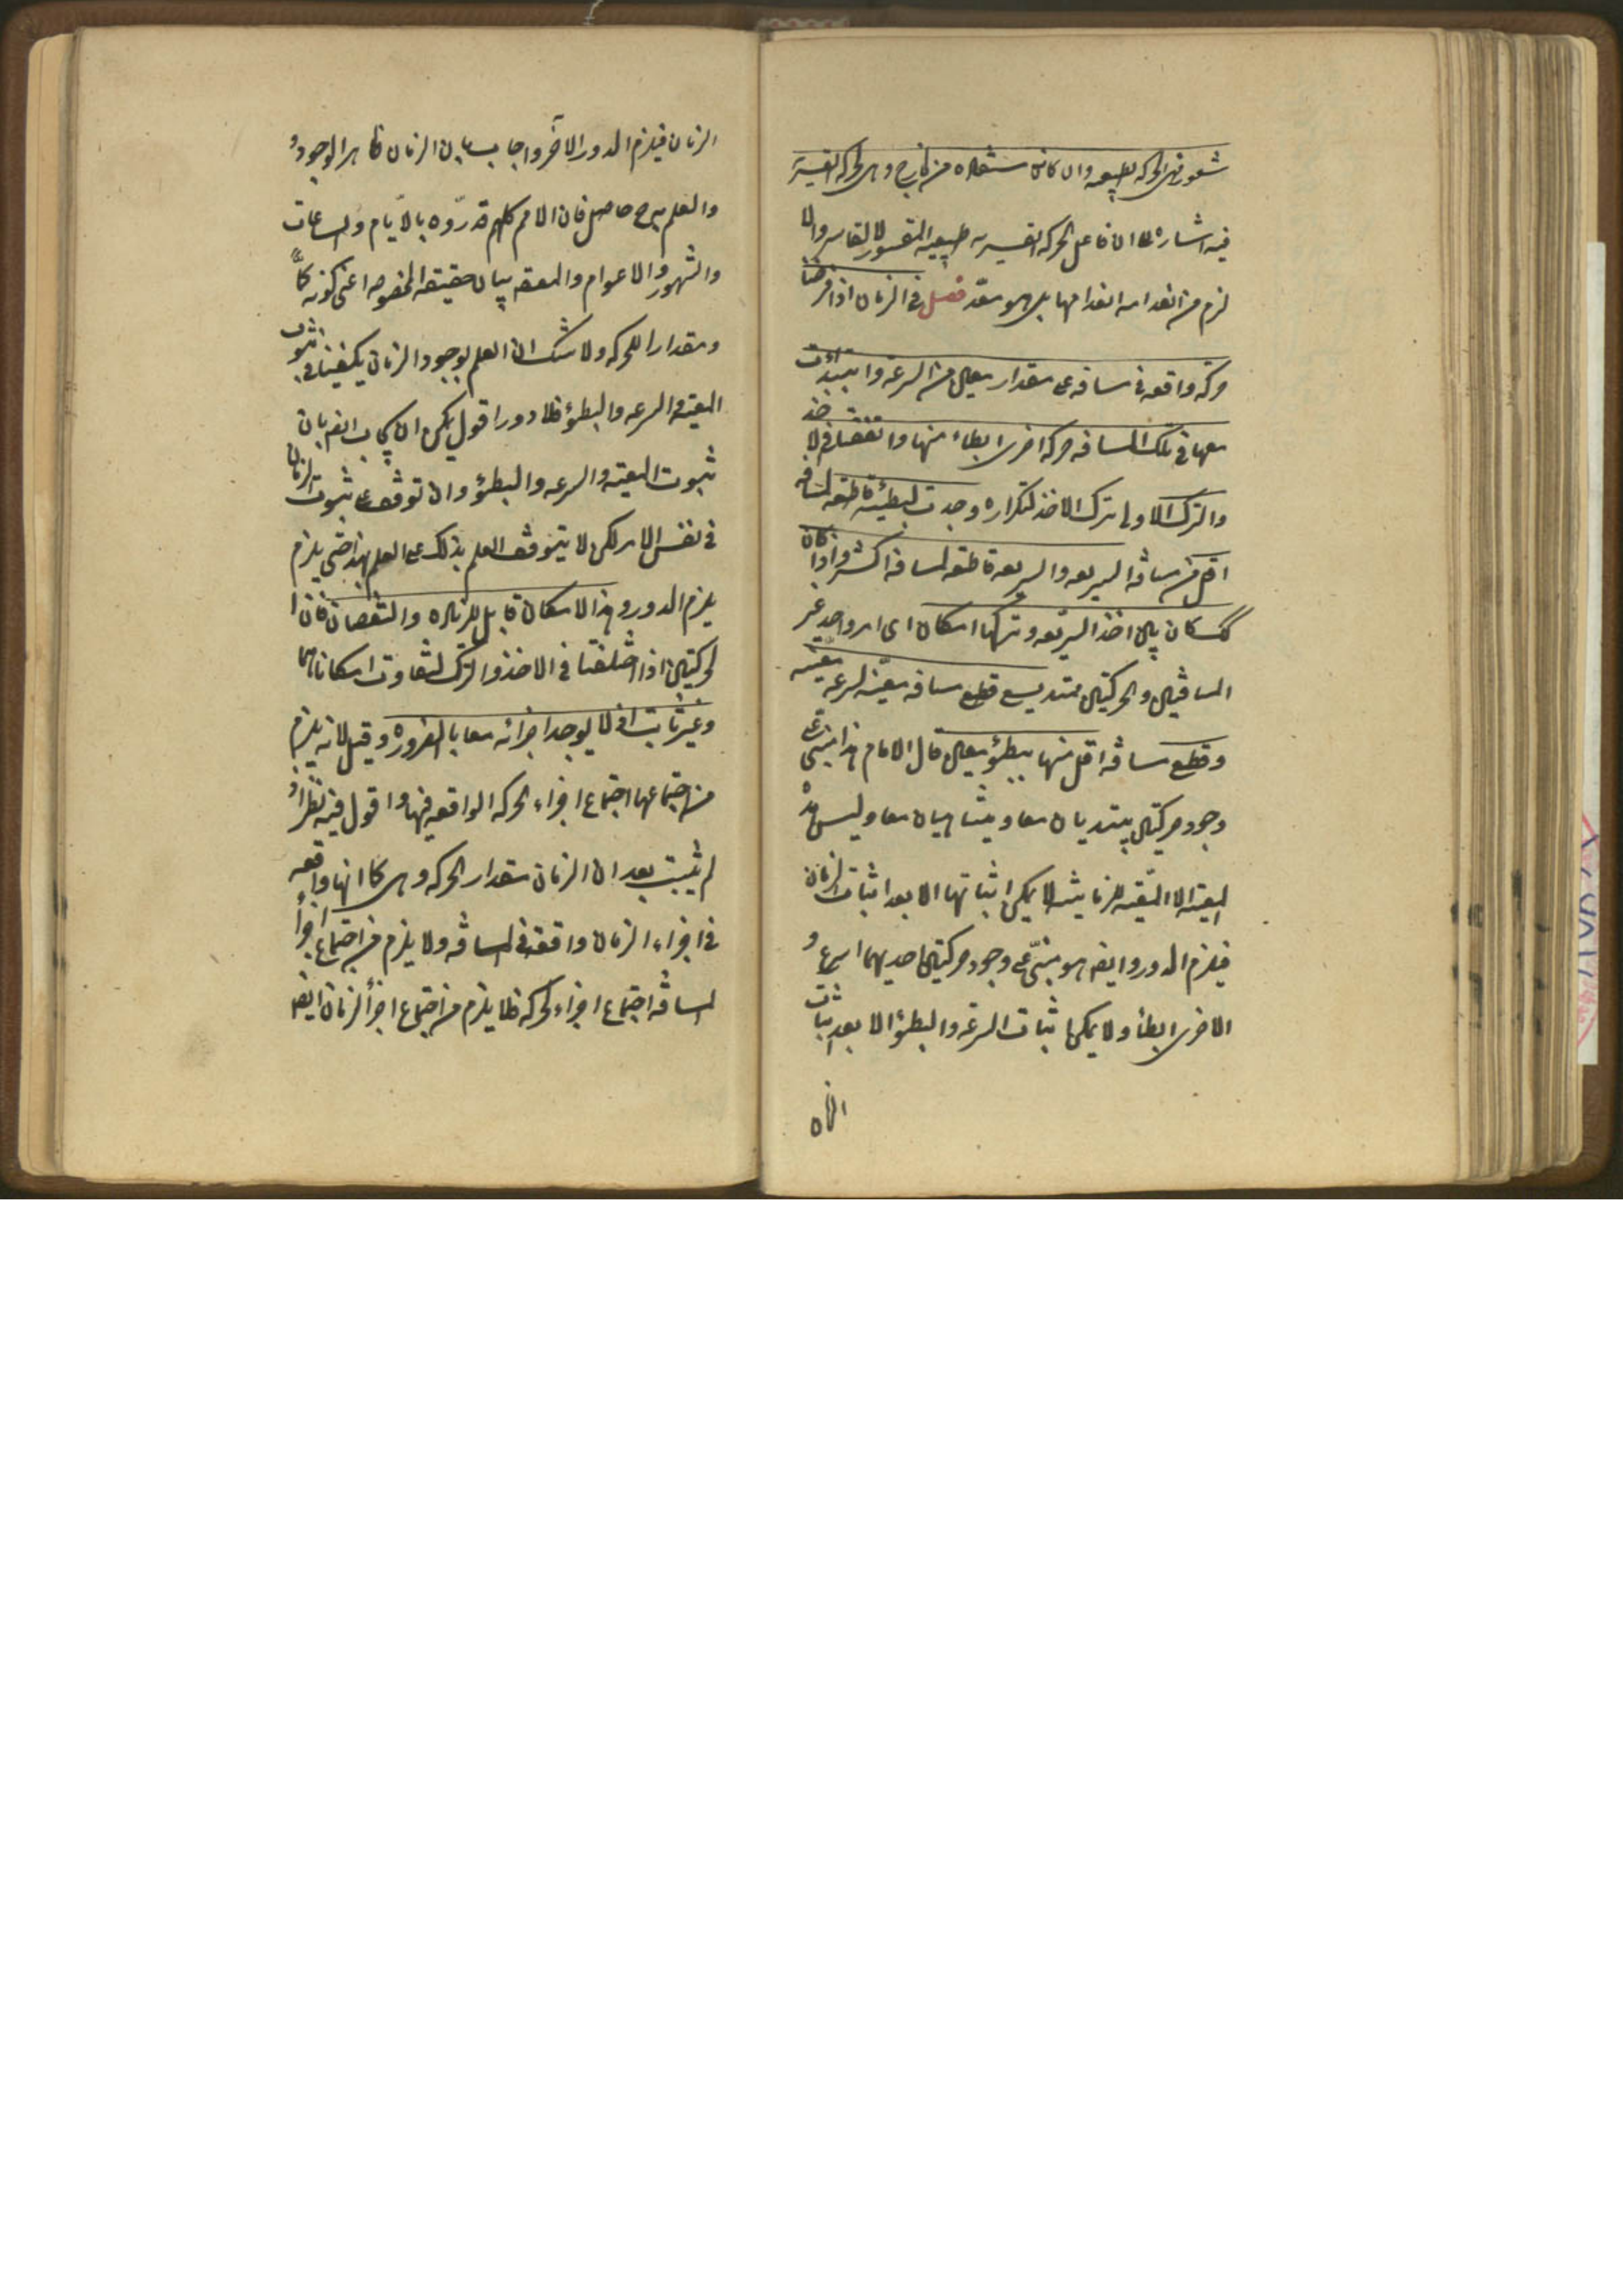 شعور فهى الحركه الطبيعيه وان كانت مستفاده من خارج وهى الحركه القسريه
فيه اشاره الى ان فاعل الحركه القسريه طبيعه المقسور لا القاسر والا
لزم من انعدامه انعدامها بل هو معد فصل فى الزمان اذا فرضنا
حركه واقعه فى مسافه على مقدار معين من السرعه وابتدات
معها فى تلك المسافه حركه اخرى ابطاء منها واتفقتا فى الاخذ
والترك الاولى ترك الاخذ لتكراره وجدت البطيئه قاطعه لمسافه
اقل من مسافه السريعه والسريعه قاطعه لمسافه اكثر واذا كان
كك كان بين اخذ السريعه وتركها امكان اى امر واحد غير
المسافتين والحركتين ممتد يسع قطع مسافه معينه بسرعه معينه
وقطع مسافه اقل منها ببطؤ معين قال الامام هذا مبنى على
وجود حركتين يبتديان معا وينتهيان معا وليس هذه
المعيه الا المعيه الزمانيه التى لا يمكن اثباتها الا بعد اثبات الزمان
فيلزم الدور وايضا هو مبنى على وجود حركتين احديهما اسرع و
الاخرى ابطأ ولا يمكن اثبات السرعه والبطؤ الا بعد اثبات
الزمان
الزمان فيلزم الدور الآخر واجاب بان الزمان ظاهر الوجود و
والعلم به حاصل فان الامم كلهم قدّروه بالايّام والساعات
والشهور والاعوام والمقصود بيان حقيقته المخصوصه اعنى كونه كمًّا
ومقدارا للحركه ولا شك ان العلم بوجود الزمان يكفينا فى ثبوت
المعيه والسرعه والبطؤ فلا دور اقول يمكن ان يجاب ايضا بان
ثبوت المعيه والسرعه والبطؤ وان توقف على ثبوت الزمان
فى نفس الامر لكن لا يتوقف العلم بذلك على العلم بهذا حتى يلزم
يلزم الدور وهذا الامكان قابل للزياده والنقصان فان ا
لحركتين اذا اختلفتا فى الاخذ والترك لتفاوت امكاناهما
وغير ثابت اذ لا يوجد اجزائه معا بالضروره وقيل لانه يلزم
من اجتماعها اجتماع اجزاء الحركه الواقعه فيها واقول فيه نظر اذ
لم يثبت بعد ان الزمان مقدار الحركه وهى كما انها واقعه
فى اجزاء الزمان واقعه فى المسافه ولا يلزم من اجتماع اجزأ
المسافه اجتماع اجزاء الحركه فلا يلزم من اجتماع اجزأ الزمان ايضا